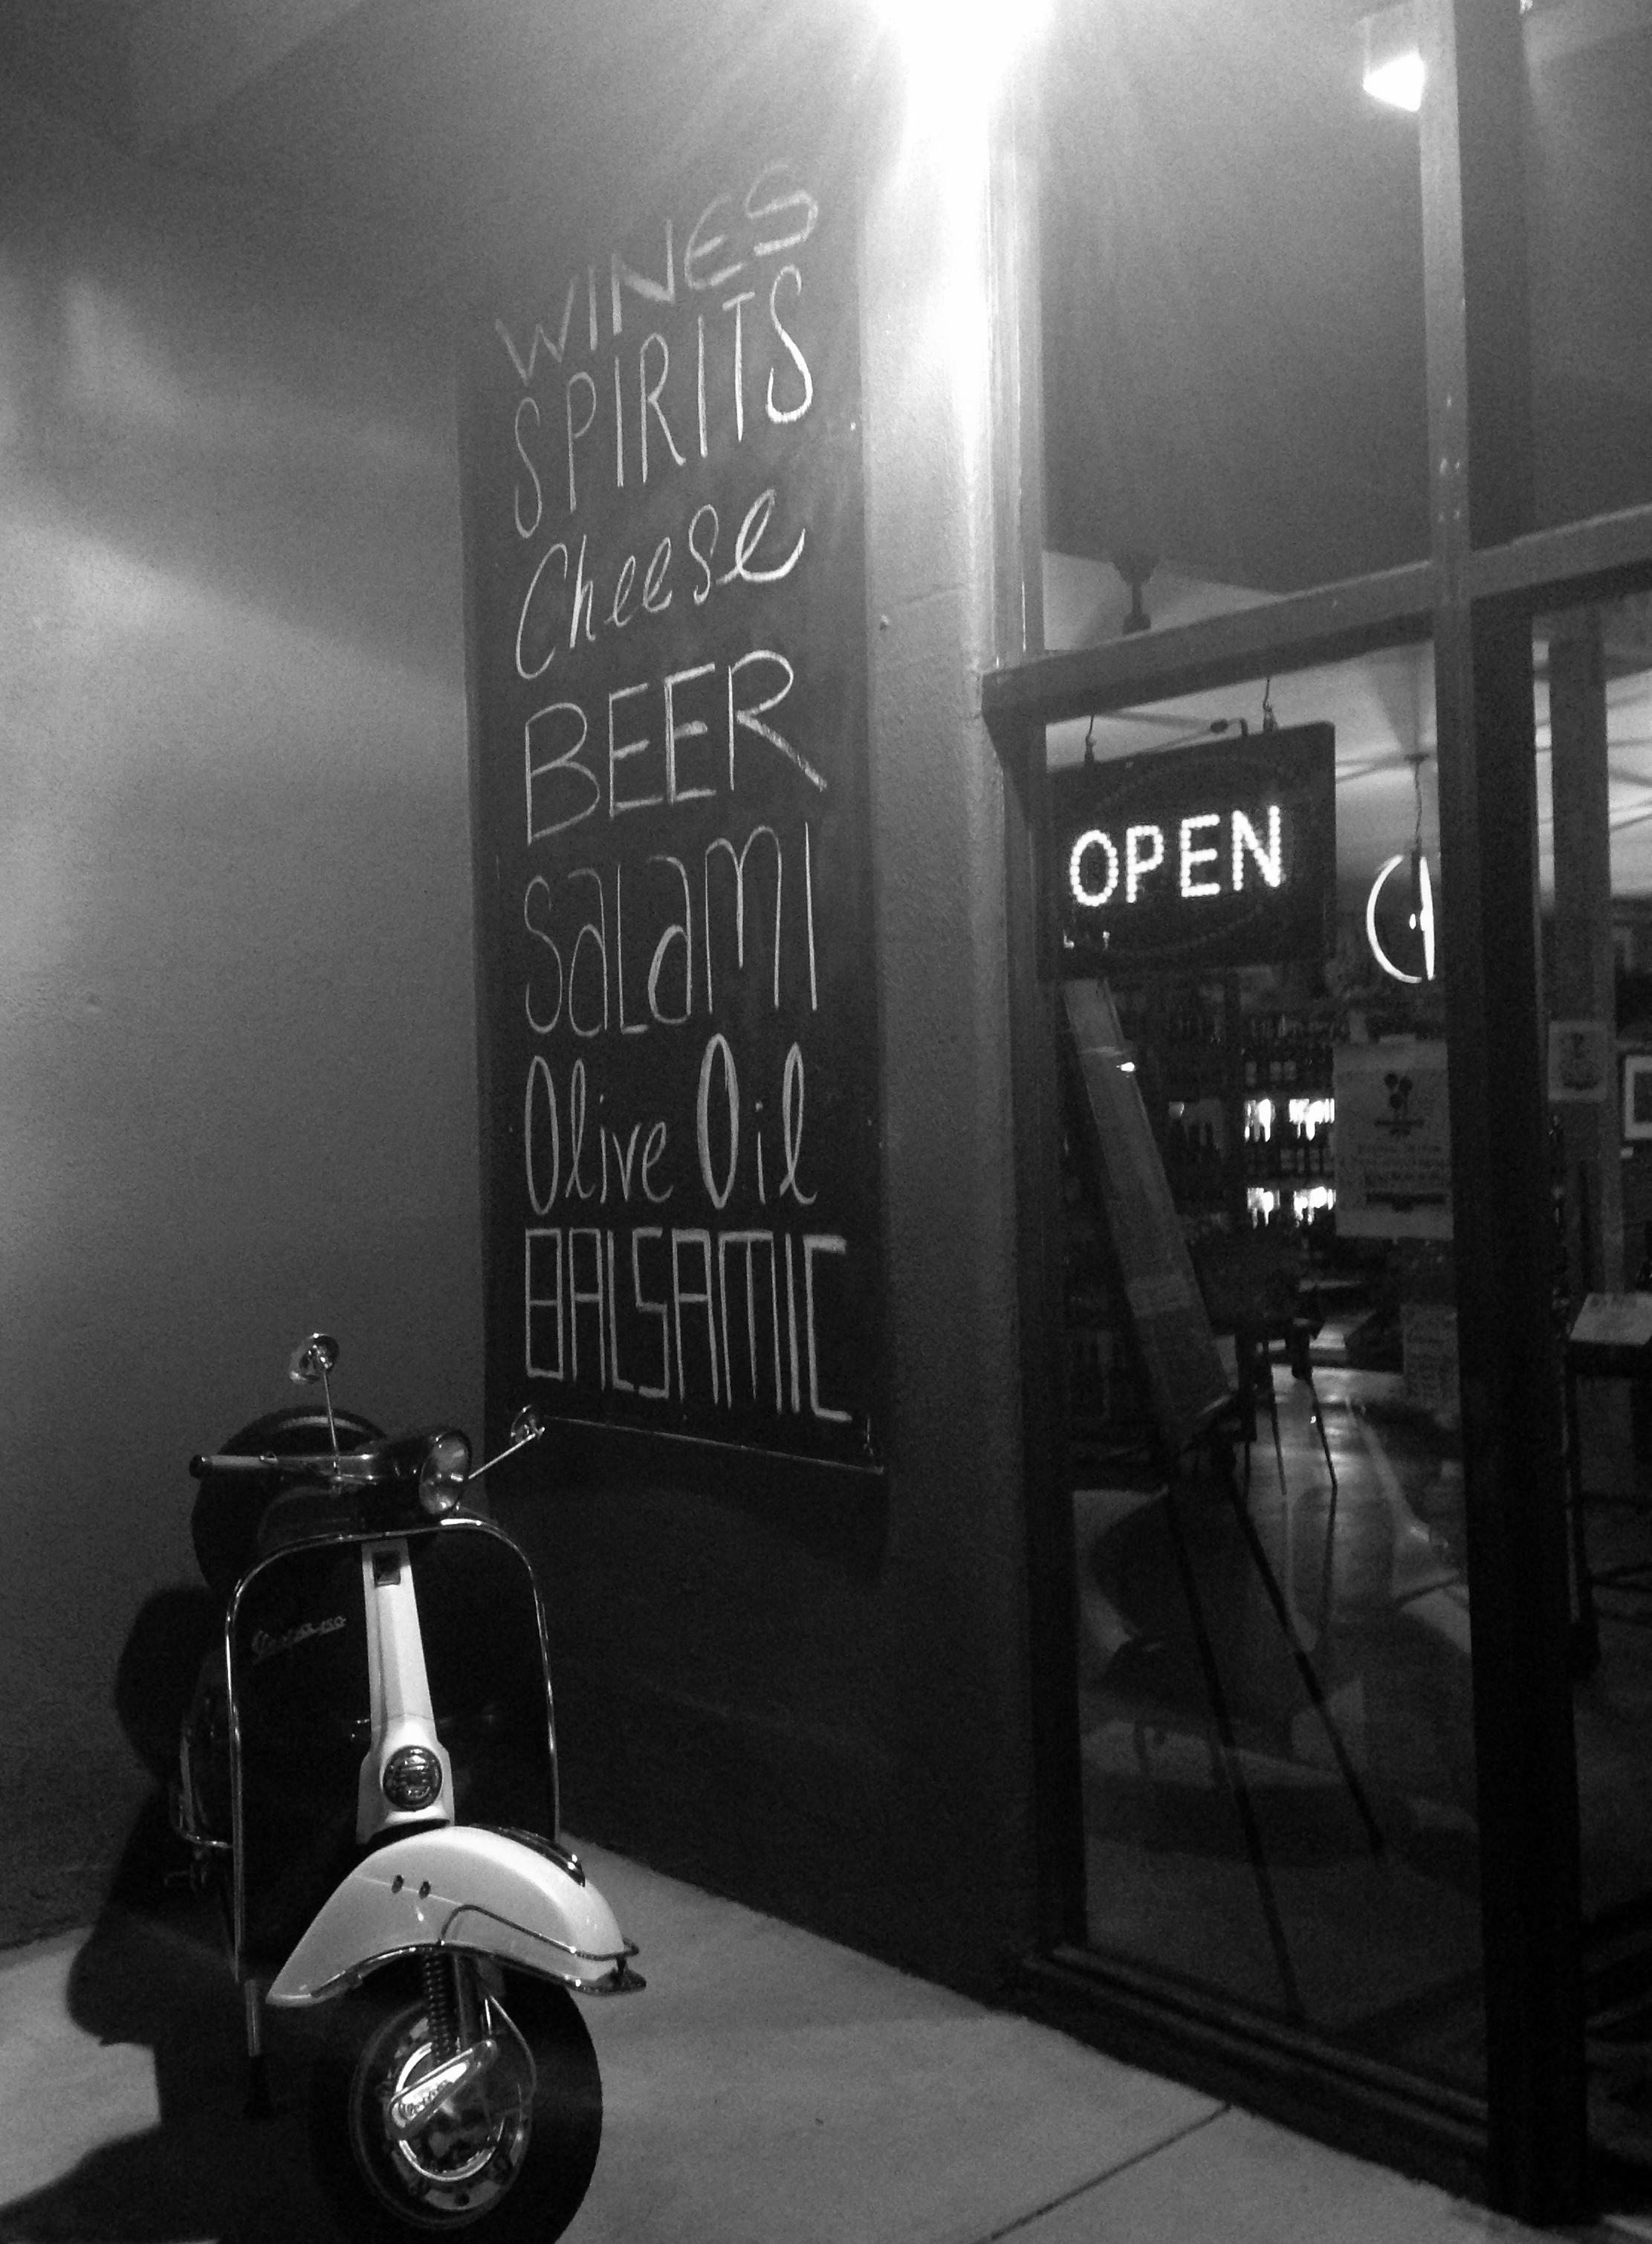 WINES
SPIRITS
Cheese
BEER
SALAMI
Olive Oil
BALSAMIC
OPEN